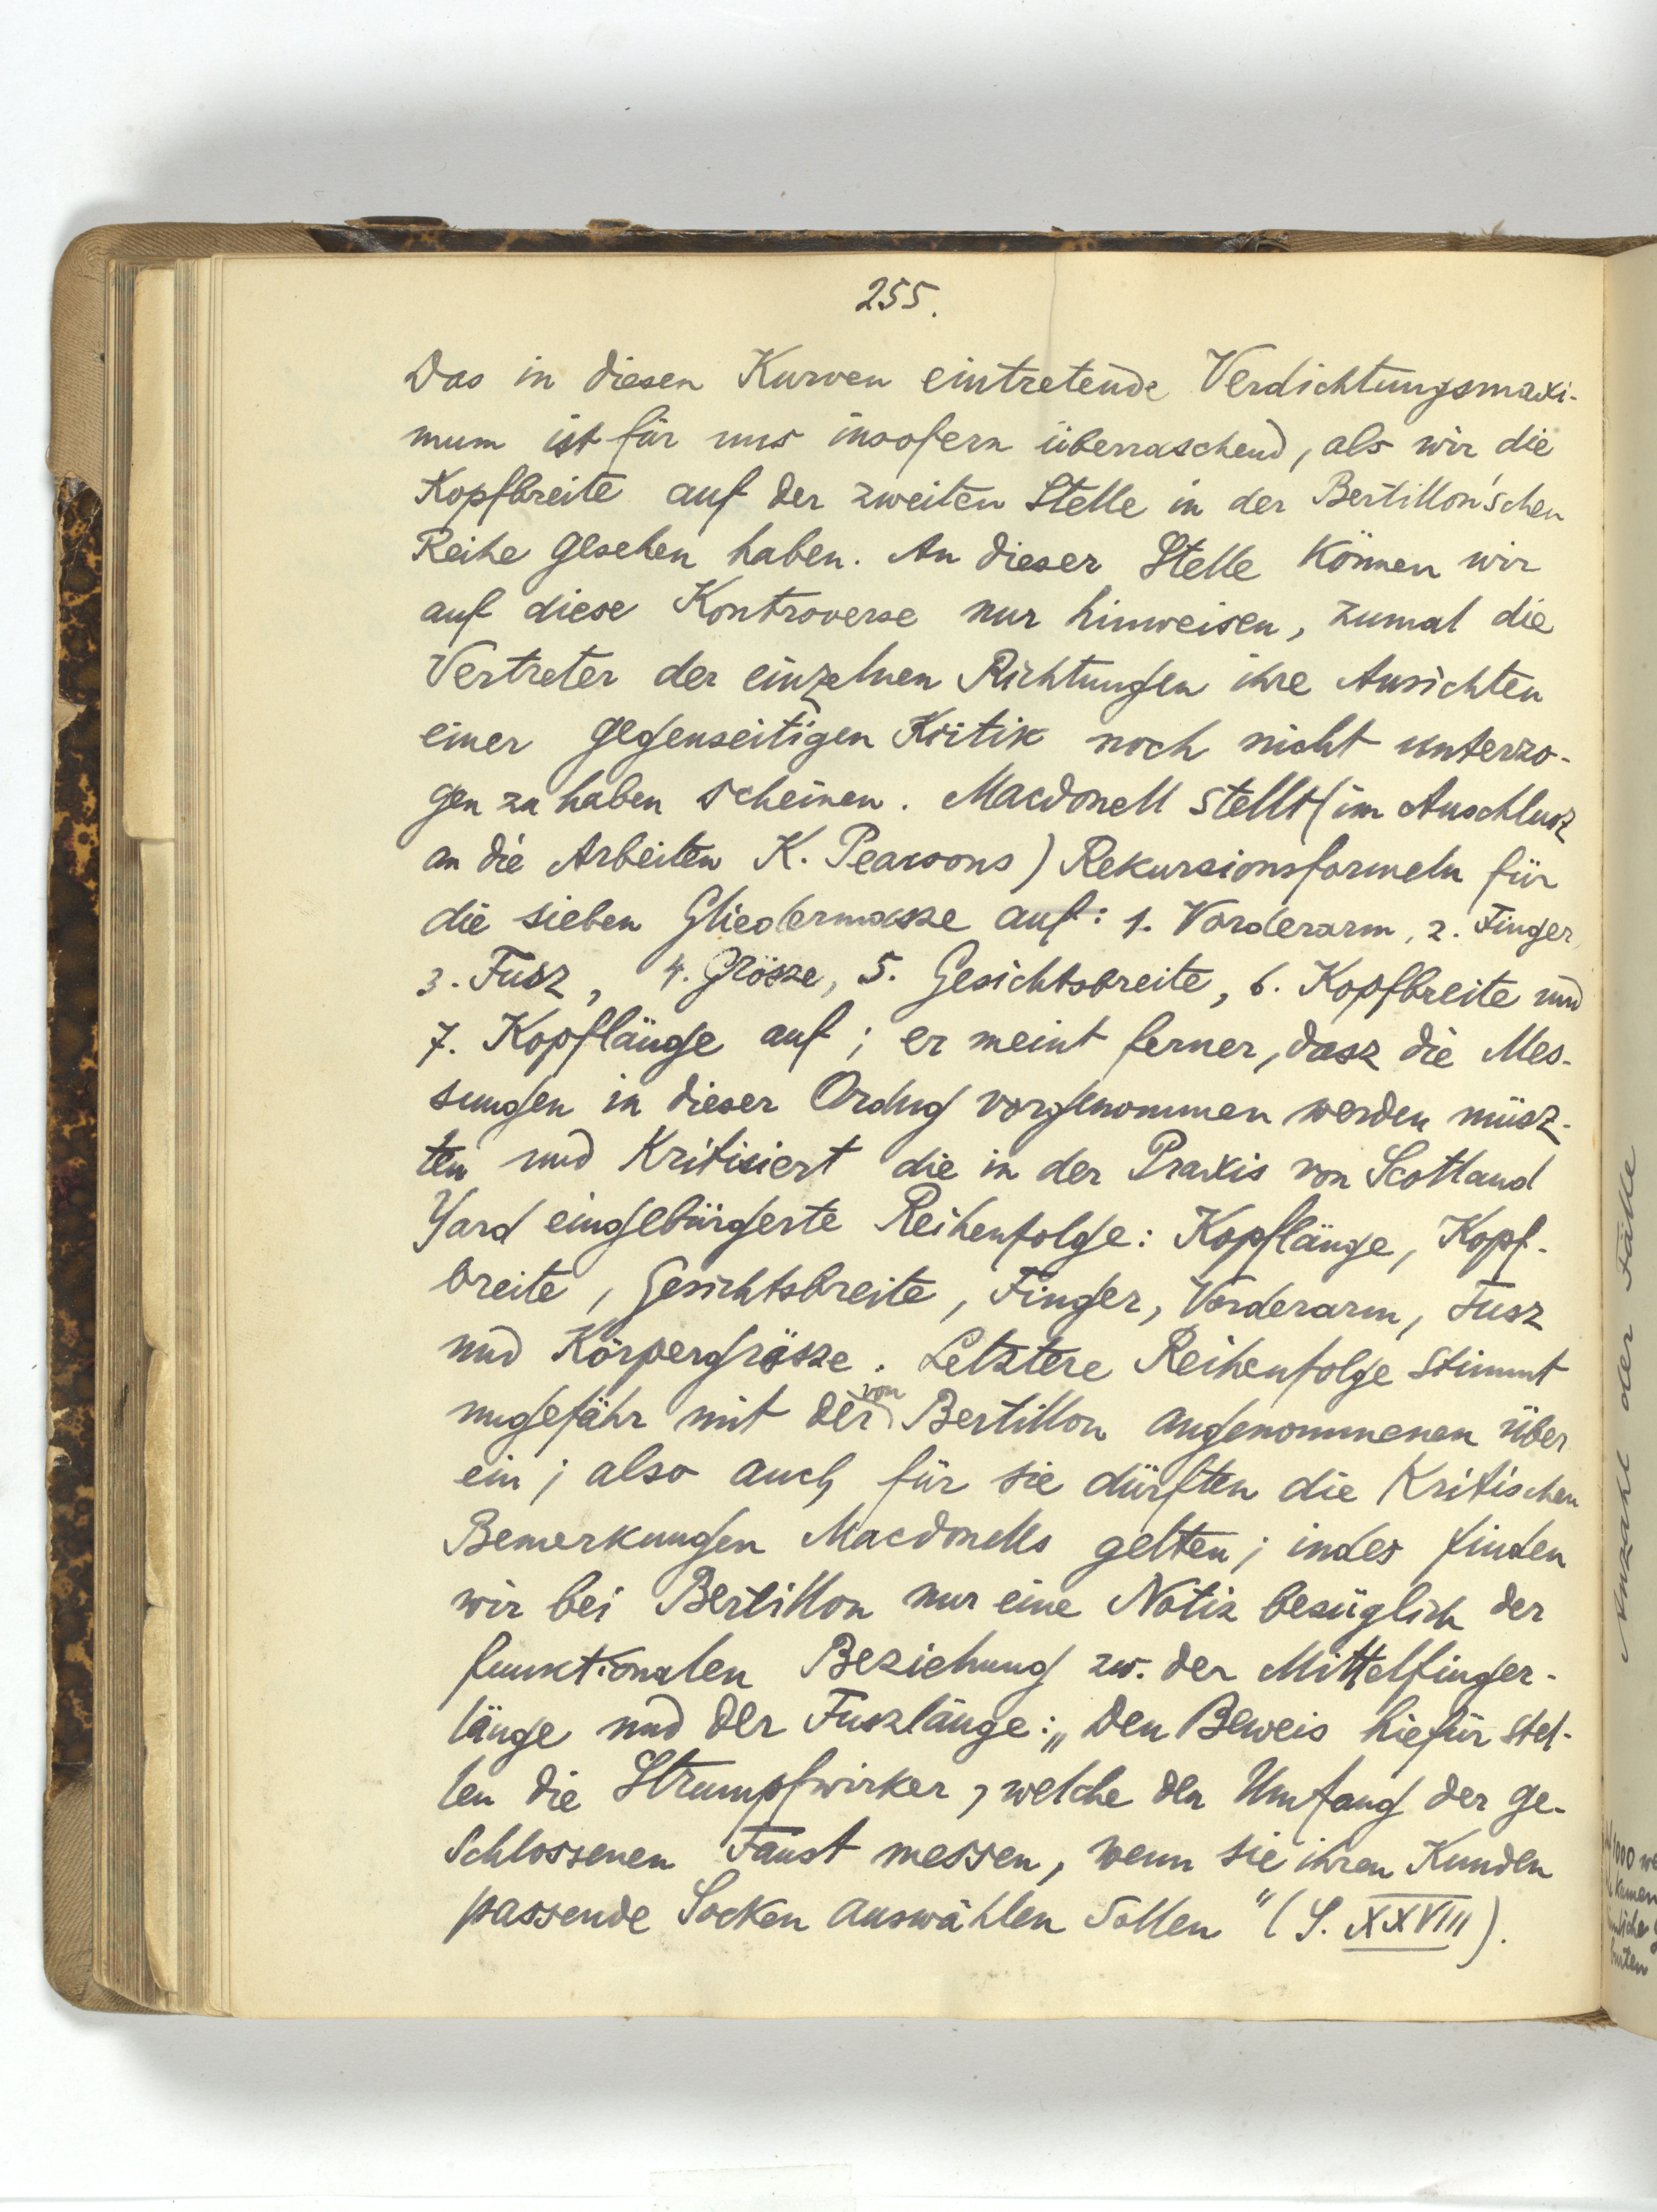 255.
Das in diesen Kurven eintretende Verdichtungsmaxi-
mum ist für uns insofern überraschend, als wir die
Kopfbreite auf der zweiten Stelle in der Bertillon'schen
Reihe gesehen haben. An dieser Stelle können wir
auf diese Kontroverse nur hinweisen, zumal die
Vertreter der einzelnen Richtungen ihre Ansichten
einer gegenseitigen Kritik noch nicht unterzo-
gen zu haben scheinen. Macdonell stellt (im Anschlusz
an die Arbeiten K. Pearsons) Rekursionsformeln für
die sieben Gliedermasze auf: 1. Vorderarm, 2. Finger
3. Fusz, 4. Grösze, 5. Gesichtsbreite, 6. Kopfbreite und
7. Kopflänge auf; er meint ferner, dasz die Mes-
sungen in dieser Ordng vorgenommen werden müsz-
ten und kritisiert die in der Praxis von Scotland
Yard eingebürgerte Reihenfolge: Kopflänge, Kopf-
breite, Gesichtsbreite, Finger, Vorderarm, Fusz
und Körpergrösze. Letztere Reihenfolge stimmt
ungefähr mit der von Bertillon angenommenen über
ein; also auch für sie dürften die kritischen
Bemerkungen Macdonells gelten; indes finden
wir bei Bertillon nur eine Notiz bezüglich der
funktionalen Beziehung zw. der Mittelfinger-
länge und der Fuszlänge: „Den Beweis hiefür stel-
len die Strumpfwirker, welche den Umfang der ge-
schlossenen Faust messen, wenn sie ihren Kunden
passende Socken auswählen sollen" (S. XXVIII).
Anzahl der Fälle
1000